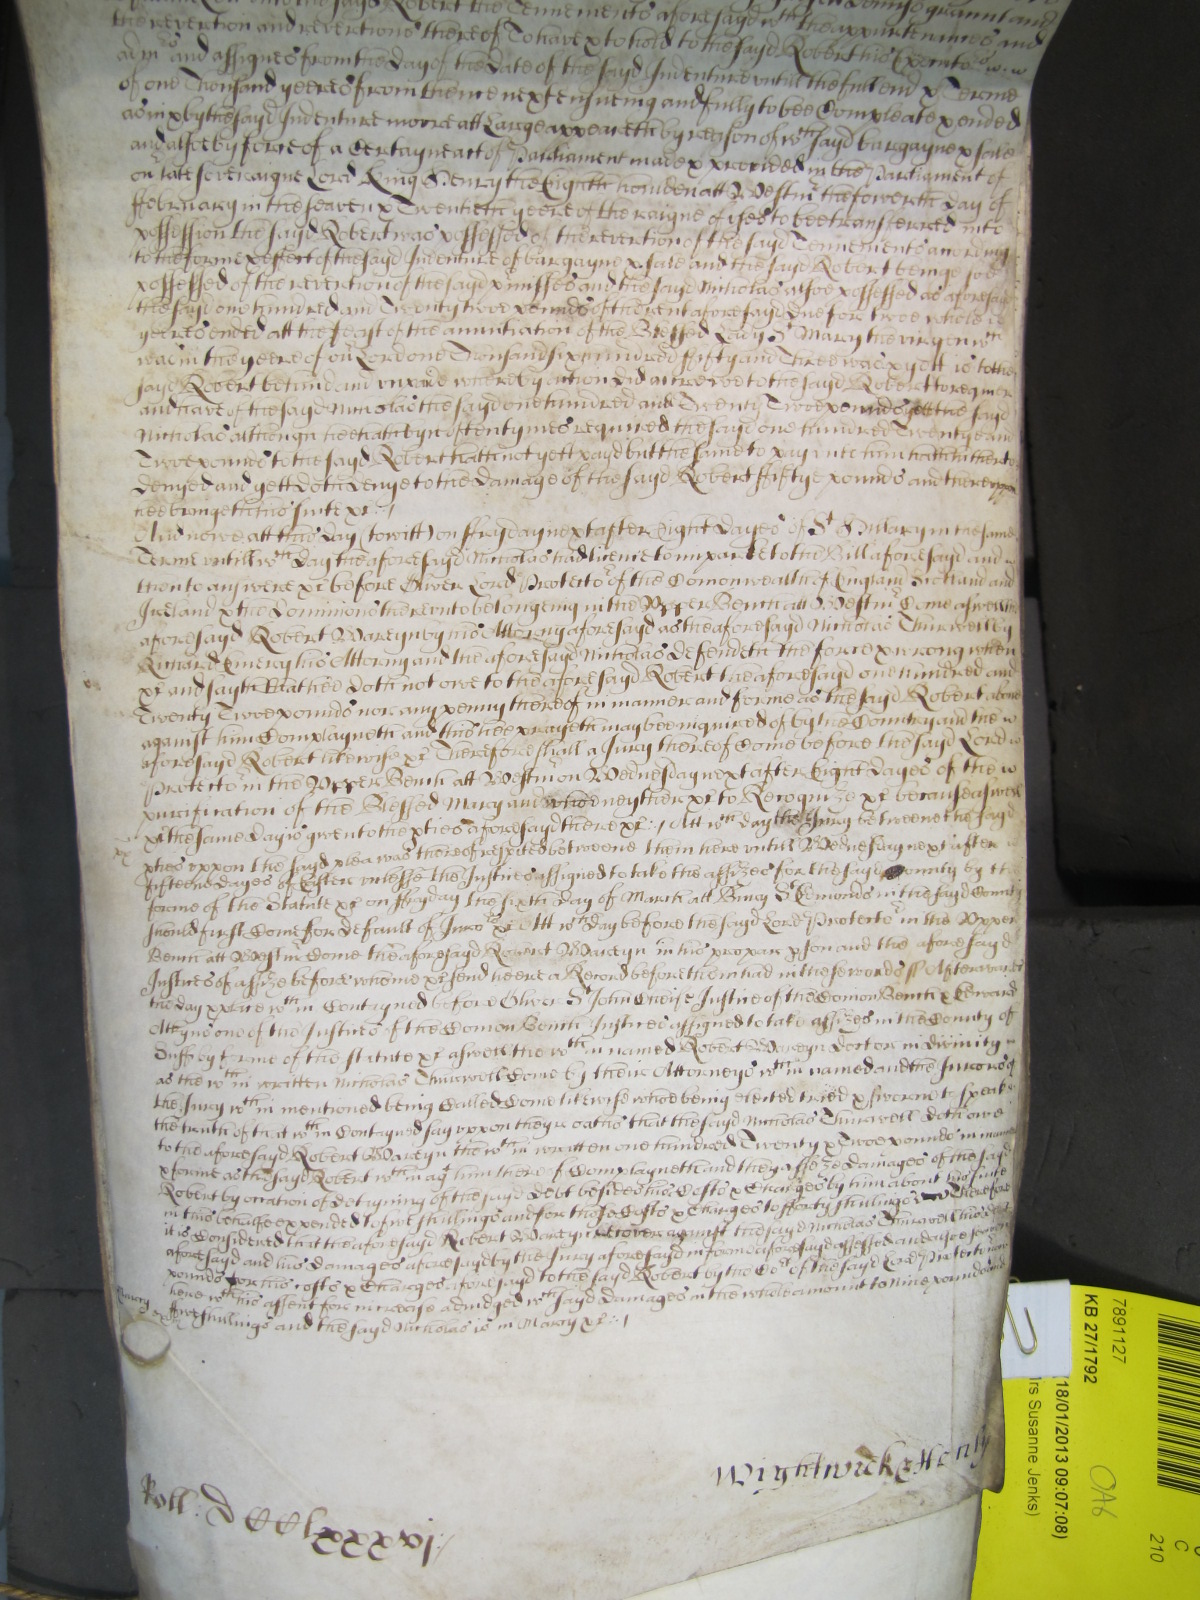 the revertion and revertions thereof To have & to hold to the sayd Robert his Executors
and assignes from the Day of the Date of the sayd Indenture untill the full end & Terme
of one Thousand yeeres from thence next ensueing and fully to bee Compleate & ended
as in & by the sayd Indenture more att Large appeareth by reason of wch sayd bargayne & sale
and alsoe by force of a Certayne act of Parliament made & provided in the Parliament of
our late Soveraigne Lord King Henry the Eighth houlden att Westmr the fowerth Day of
ffebruary in the seaven & Twentieth yeere of the raigne of uses to bee transferred into
possession the sayd Robert was possessed of the revertion of the sayd Tennements according
to the forme & effect of the sayd Indenture of bargayne & sale and the sayd Robert beinge soe
possessed of the revertion of the sayd pmisses and the sayd Nicholas alsoe possessed as aforesayd
the sayd one hundred and Twenty two pounds of the rent aforesayd Due for twoe whole
yeeres ended att the feast of the annuntiation of the Blessed Lady St Mary the virgen wch
was in the yeere of our Lord one Thousand six hundred ffifty and Three was & yett is to the
sayd Robert behind and unpaid whereby action did accrewe to the sayd Robert to require
and have of the sayd Nicholas the sayd one hundred and Twenty Twoe pounds yett the sayd
Nicholas although hee hath byn oftentymes required the sayd one hundred Twenty and
Twoe pounds to the sayd Robert hath not yett payd but the same to pay unto him hath hitherto
denyed and yett doth denye to the Damage of the sayd Robert ffiftye pounds and thereupon
hee bringeth this suite &c
And nowe att this Day (to witt) on ffryday next after Eight Dayes of St Hillary in the same
Terme untill wch Day the aforesayd Nicholas had licence to imparle to the Bill aforesayd and
then to answere &c before Oliver Lord Protector of the Comonwealth of England Scotland and
Ireland & the Dominions thereunto belongeing in the Upper Bench att Westmr Come aswell the
aforesayd Robert Wareyn by his Attorny aforesayd as the aforesayd Nicholas Thurwell by
Richard Emery his Attorny and the aforesayd Nicholas defendeth the force & wrong when
&c and sayth That hee doth not owe to the aforesayd Robert the aforesayd one hundred and
Twenty Twoe pounds nor any penny thereof in manner and forme as the sayd Robert above
against him Complayneth and this hee prayeth may bee inquired of by the Country and the
aforesayd Robert likewise &c Therefore shall a Jury thereof Come before the sayd Lord
Protector in the Upper Bench att Westmr on Wednesday next after Eight Dayes of the
purification of the Blessed Mary and whoe neyther &c to Recognize &c because aswell
&c the same day is given to the pties aforesayd there &c Att wch day the Jury betweene the sayd
pties uppon the sayd plea was thereof respited betweene them here untill Wednesday next after
fifteene dayes of Easter unlesse the Justices assigned to take the assizes for the sayd County by the
forme of the Statute &c on ffryday the sixth day of March att Bury St Edmonds in the sayd County
should first Come for default of Juros &c Att wch Day before the sayd Lord Protector in the Upper
Bench att Westmr Come the aforesayd Robert Wareyn in his proper pson and the aforesayd
Justices of assize before whome &c send heere a Record before them had in these words ss Afterwards
the day & place wthin Contayned before Oliver St John Cheife Justice of the Comon Bench & Edward
Atkyns one of the Justices of the Comon Bench Justices assigned to take assizes in the County of
Suff by forme of the statute &c aswell the wthin named Robert Wareyn Doctor in divinity
as the wthin written Nicholas Thurwell Come by their Attorneys wthin named and the Jurors of
the Jury wthin mentioned being Called Come likewise whoe being elected tried & sworne to speake
the truth of that wthin Contayned say uppon theyr oathes that the sayd Nicholas Thurwell doth owe
to the aforesayd Robert Wareyn the wthin written one hundred Twenty & Twoe pounds in manner
& forme as the sayd Robert wthin agt him thereof Complayneth and they assesse damages of the sayd
Robert by occation of detayning of the sayd debt besides his Costs & Charges by him about his suite
in this behalfe expended to five shillings and for those Costs & Charges to fforty shillings Therefore
it is Considered that the aforesayd Robert Wareyn recover against the sayd Nicholas Thurwell his debt
aforesayd and his damages aforesayd by the Jury aforesayd in forme aforesayd assessed and alsoe seaven
pounds for his costs & Charges aforesayd to the sayd Robert by the Cort of the sayd Lord Protector now
here wth his assent for increase adiudged wch sayd damages in the whole amount to nine pounds and
ffive shillings and the sayd Nicholas is in Mercy &c
Mercy
Wightwicke Henly
Roll: DCClxxxvi
7891127
KB 27/1792
18/01/2013 09:07:08)
rs Susanne Jenks)
OA6
C
210